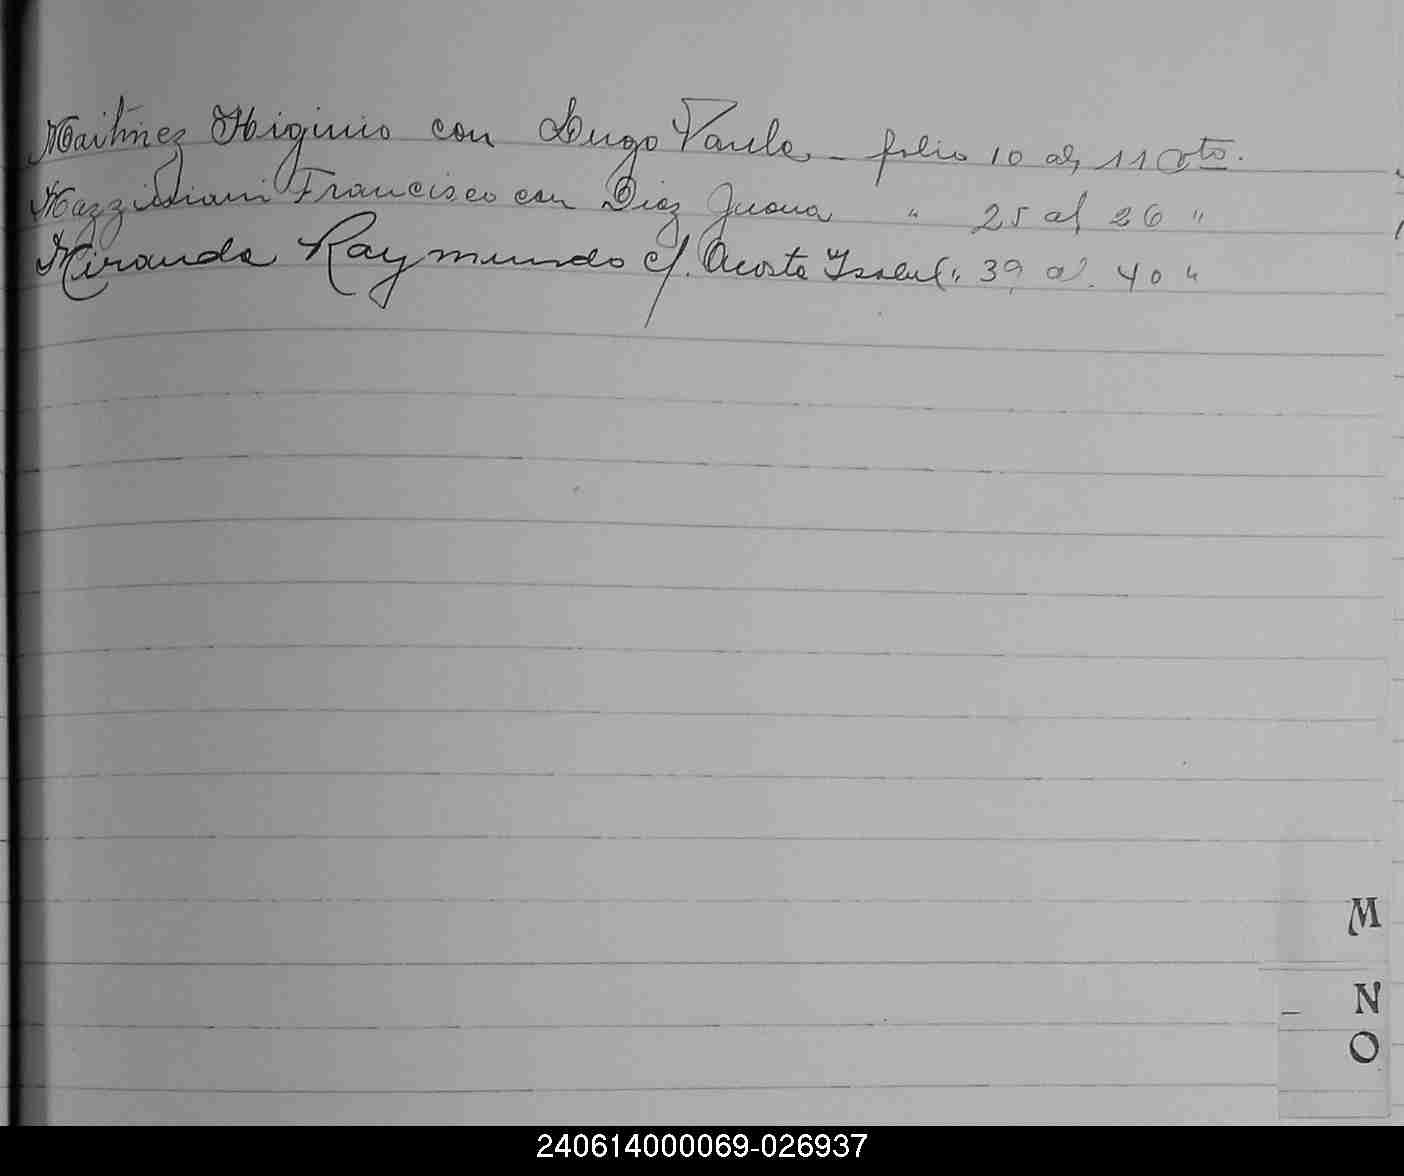 Martinez Higinio con Lugo Paula - folio 10 al 11 vto.
Francisco con Diaz Juana " 25 al 26 "
Miranda Raymundo c/. Acosta Isabel " 39 al. 40 "
M
N
O
240614000069-026937